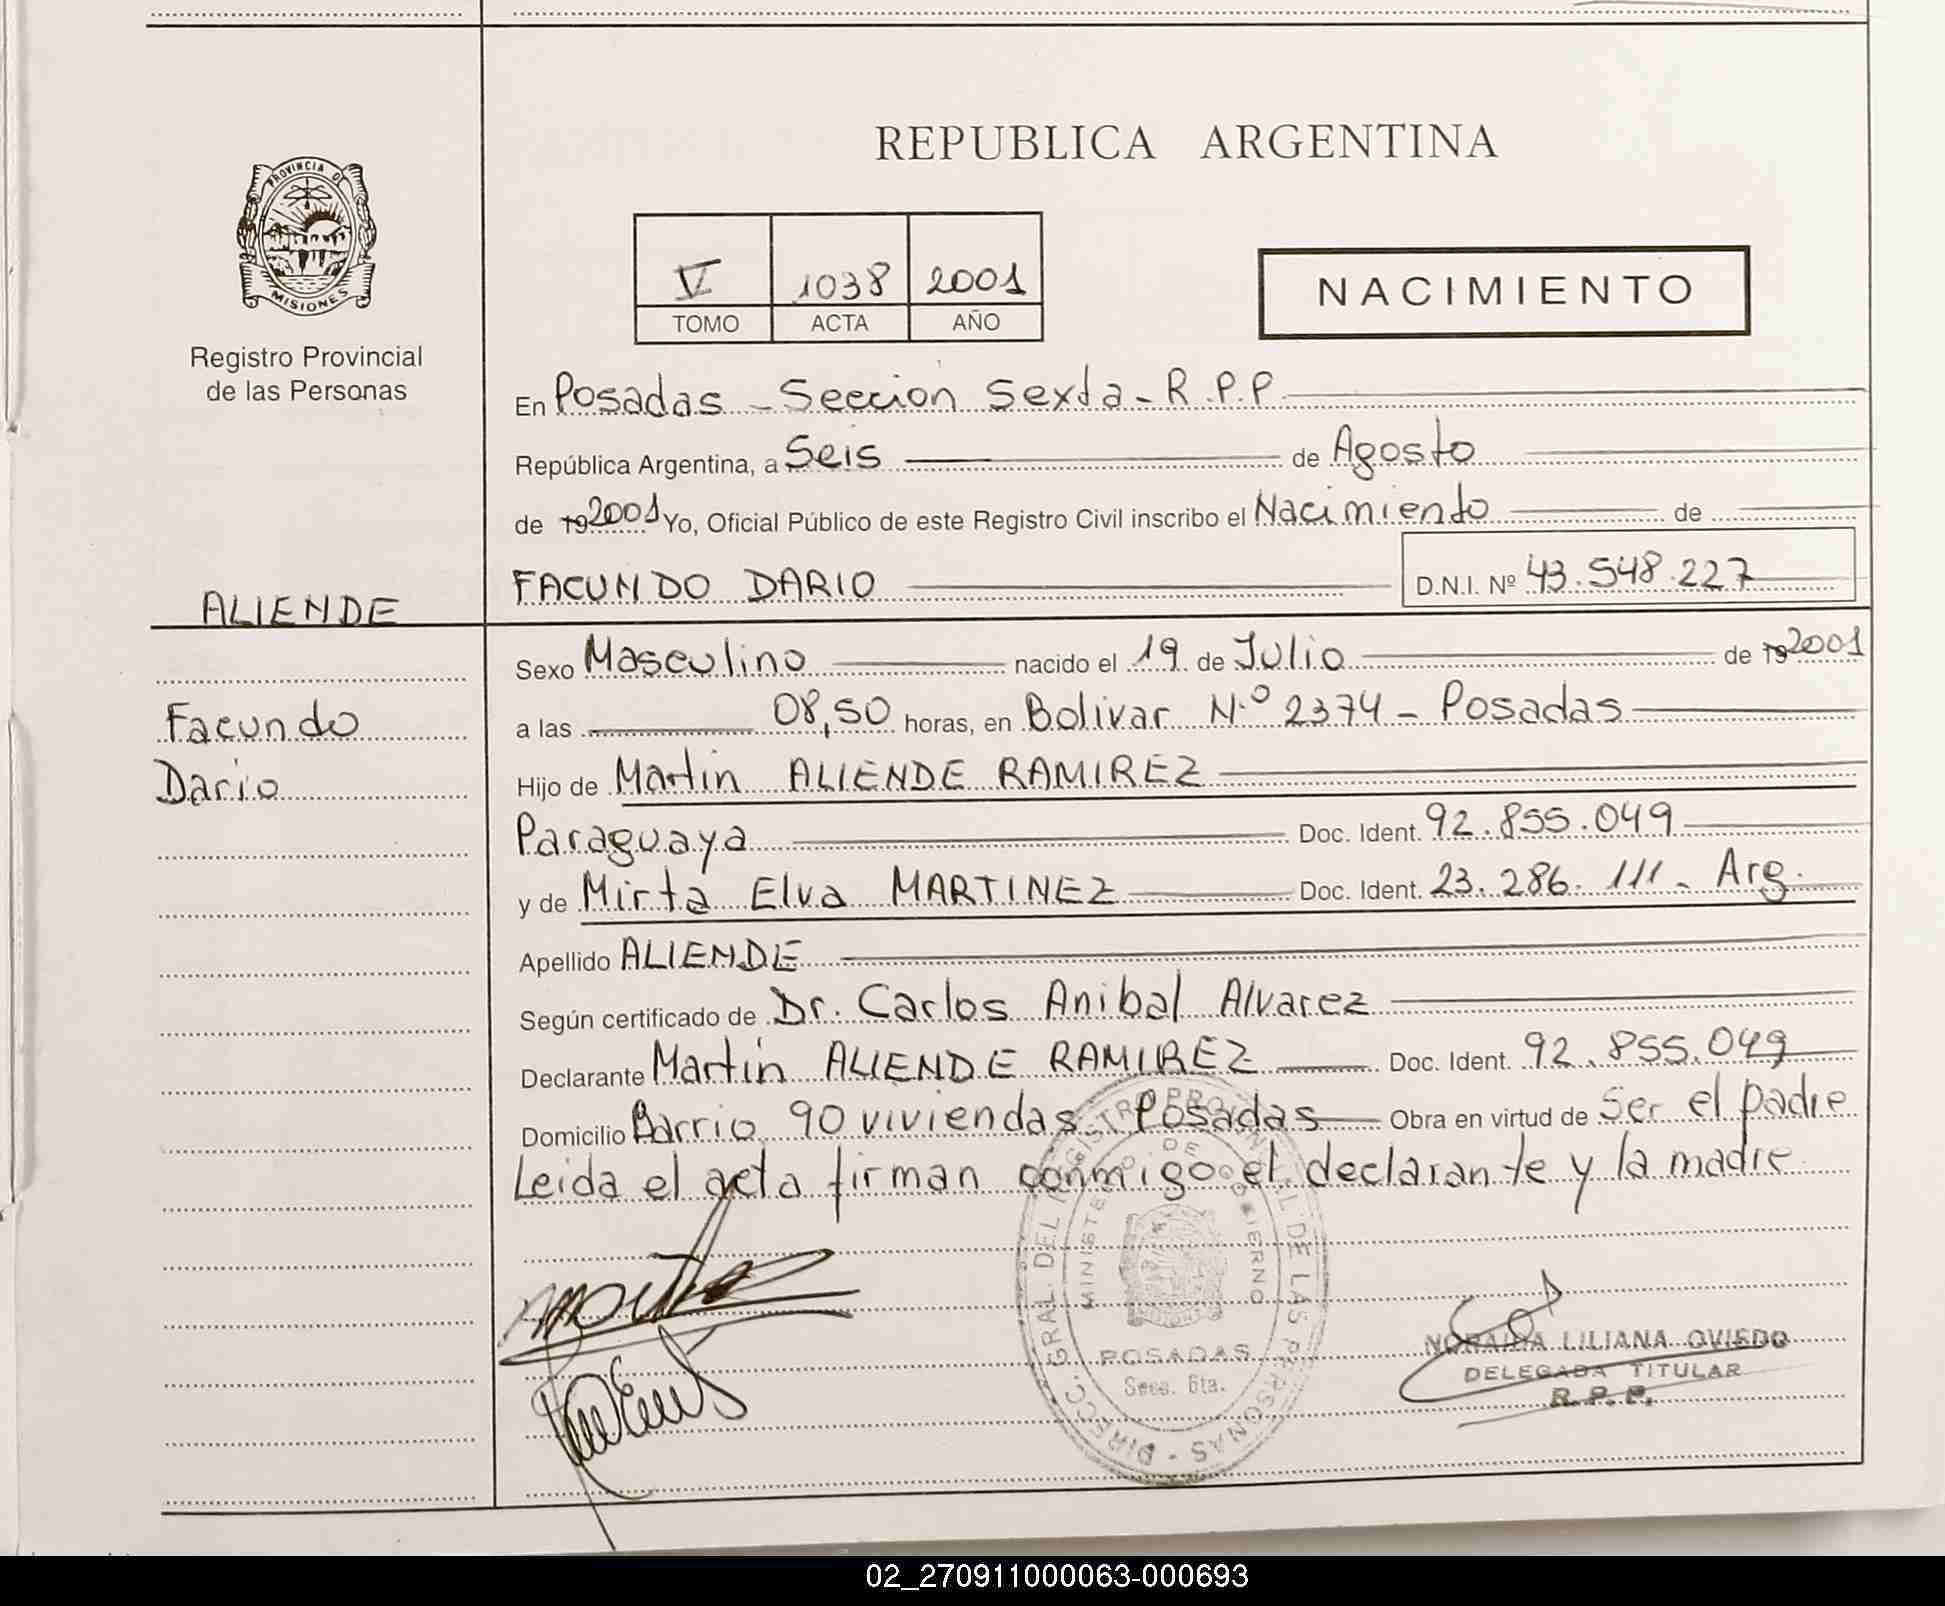 REPUBLICA ARGENTINA
PROVINCIA DE
MISIONES
Registro Provincial
de las Personas
V 1038 2001
TOMO ACTA AÑO
NACIMIENTO
En Posadas - Seccion Sexta - R.P.P
República Argentina, a Seis de Agosto
de 19 2001 Yo, Oficial Público de este Registro Civil inscribo el Nacimiento de
FACUNDO DARIO D.N.I. Nº 43.548.227
ALIENDE
Facundo
Dario
Sexo Masculino nacido el 19 de Julio de 19 2001
a las 08,50 horas, en Bolivar N.º 2374 - Posadas
Hijo de Martin ALIENDE RAMIREZ
Paraguaya Doc. Ident. 92.855.049
y de Mirta Elva MARTINEZ Doc. Ident. 23.286.111. Arg.
Apellido ALIENDE
Según certificado de Dr. Carlos Anibal Alvarez
Declarante Martin ALIENDE RAMIREZ Doc. Ident. 92.855.049
Domicilio Barrio 90 viviendas Posadas Obra en virtud de Ser el padre
Leida el acta firman conmigo el declarante y la madre
DIRECC. GRAL DEL REGISTRO PROVINCIAL DE LAS PERSONAS
MINISTERIO DE GOBIERNO
POSADAS
Secc. 6ta.
NORAIDA LILIANA OVIEDO
DELEGADA TITULAR
R.P.P.
02_270911000063-000693